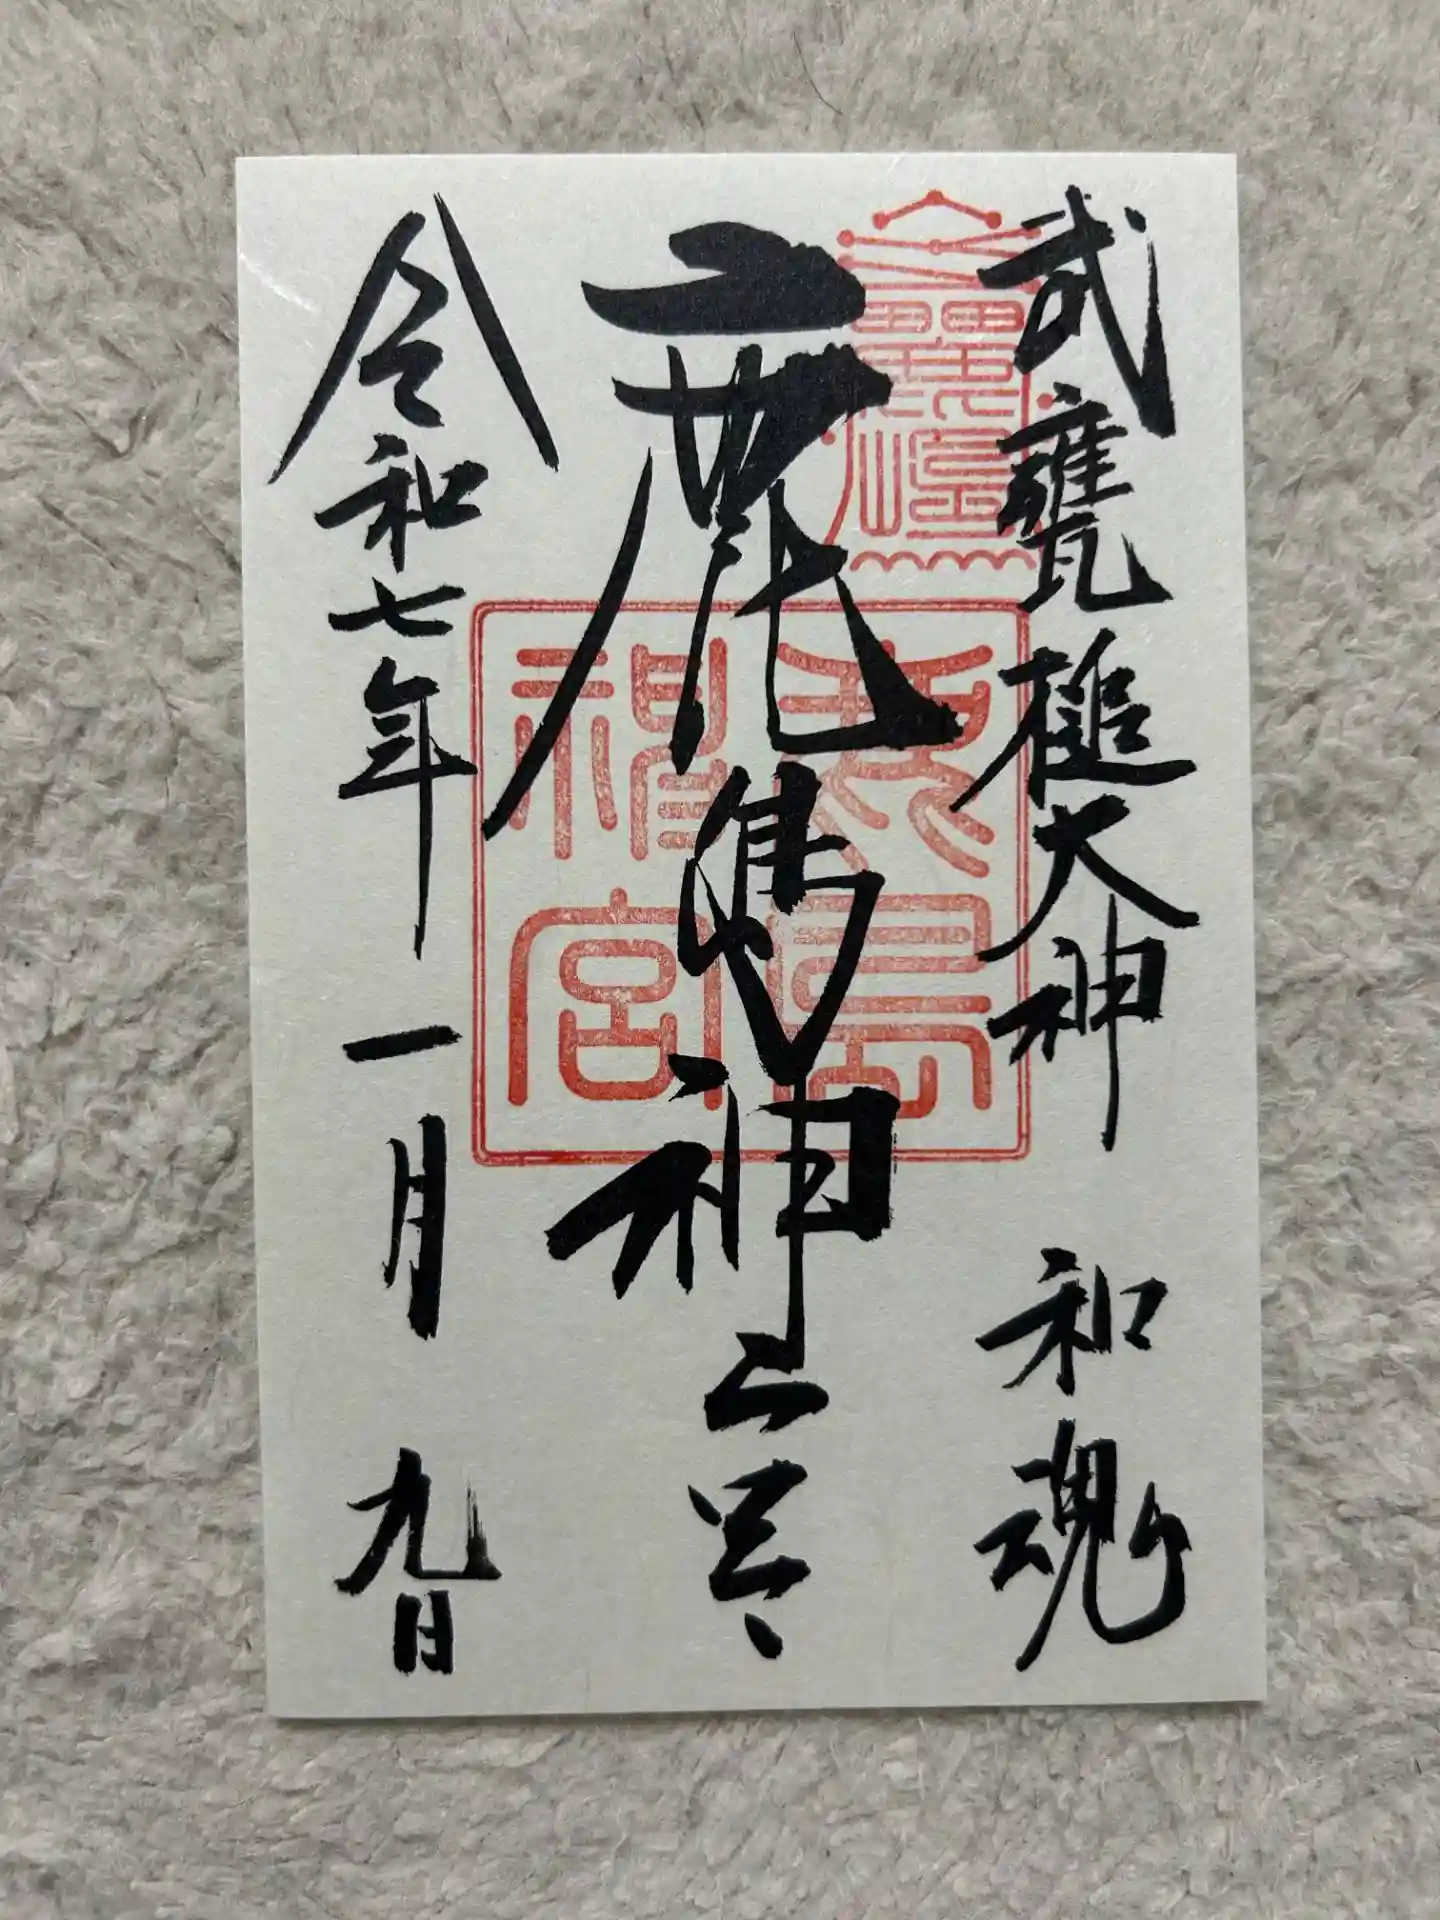 武甕槌大神 和魂
鹿島神宮
令和七年一月九日
島
神宮